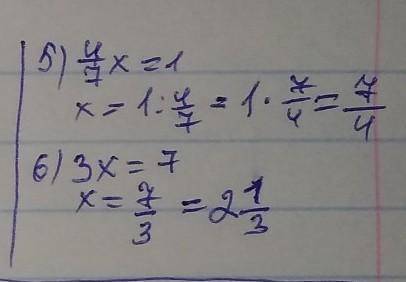 5) 4/7 x = 1
x = 1 : 4/7 = 1 · 7/4 = 7/4
6) 3x = 7
x = 7/3 = 2 1/3